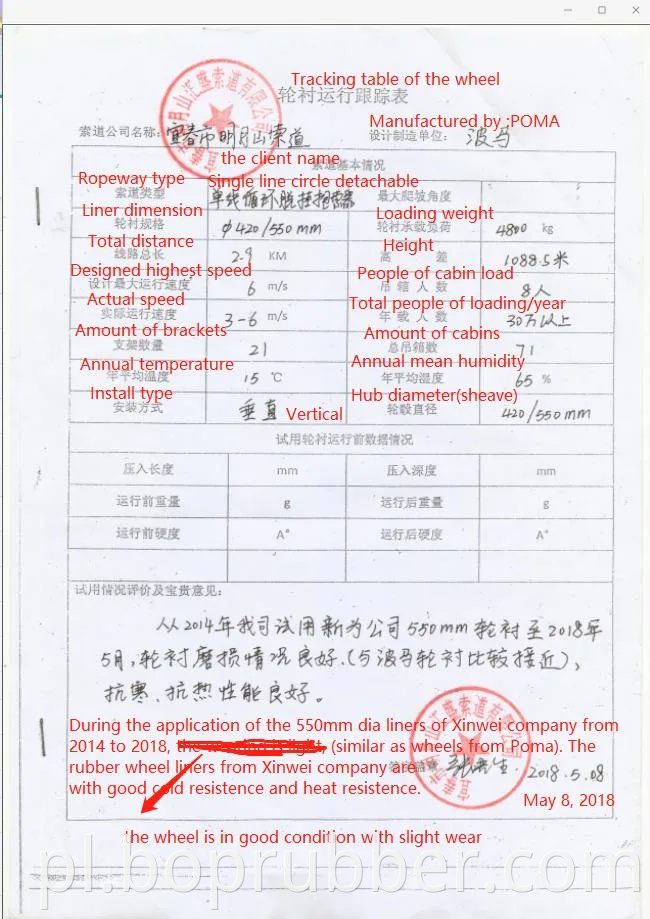 Tracking table of the wheel
轮衬运行跟踪表
Manufactured by :POMA
索道公司名称: 宜春市明月山索道 设计制造单位: 波马
the client name
索道基本情况
Ropeway type Single line circle detachable
索道类型 单线循环脱挂抱索器 最大爬坡角度
Liner dimension Loading weight
轮衬规格 φ420/550mm 轮衬承载负荷 4800 kg
Total distance Height
线路总长 2.9 KM 高差 1088.5米
Designed highest speed People of cabin load
设计最大运行速度 6 m/s 吊箱人数 8人
Actual speed Total people of loading/year
实际运行速度 3-6 m/s 年载人数 30万以上
Amount of brackets Amount of cabins
支架数量 21 总吊箱数 71
Annual temperature Annual mean humidity
年平均温度 15 ℃ 年平均湿度 65 %
Install type Hub diameter(sheave)
安装方式 垂直 Vertical 轮毂直径 420/550mm
试用轮衬运行前数据情况
压入长度 mm 压入深度 mm
运行前重量 g 运行后重量 g
运行前硬度 A° 运行后硬度 A°
试用情况评价及宝贵意见:
从2014年我司试用新为公司550mm轮衬至2018年
5月,轮衬磨损情况良好.(与波马轮衬比较接近),
抗寒、抗热性能良好。
During the application of the 550mm dia liners of Xinwei company from
2014 to 2018, (similar as wheels from Poma). The
rubber wheel liners from Xinwei company are
with good cold resistence and heat resistence.
2018.5.08
May 8, 2018
the wheel is in good condition with slight wear
pl.boprubber.com